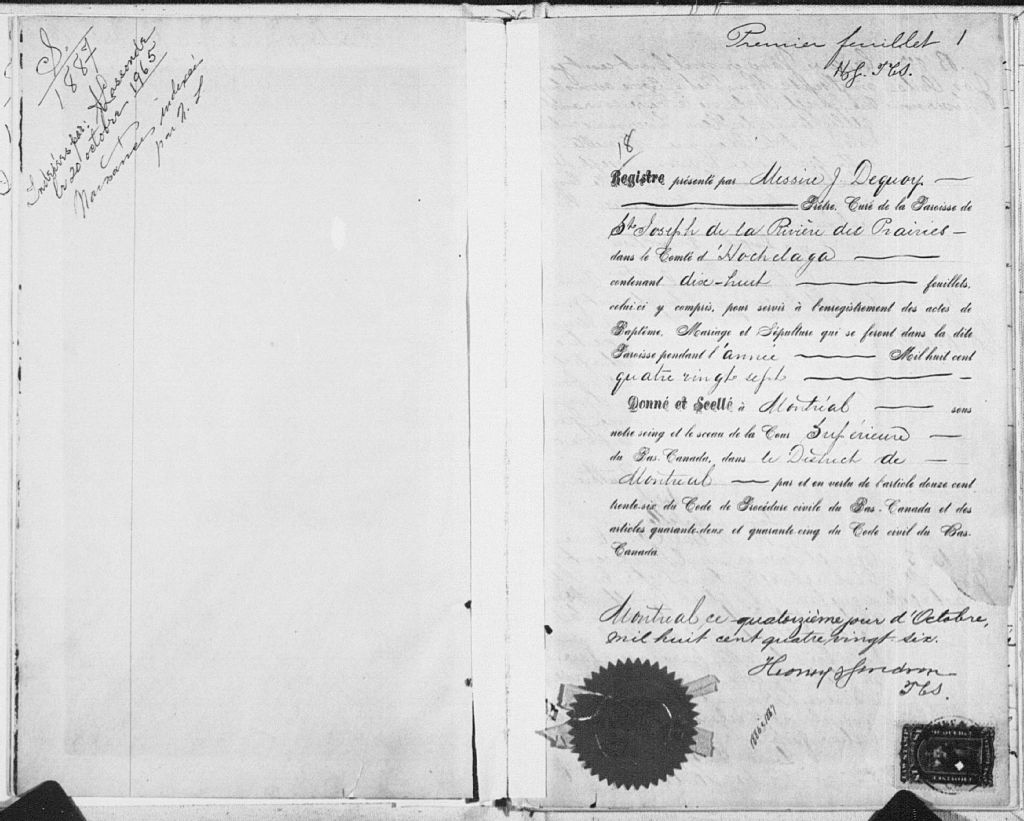 S.
1887
le 20 octobre 1965
Naissances indexées
par N. L
Premier feuillet 1
H.G. T.C.S.
18
Registre présenté par Messire J. Dequoy
Prêtre, Curé de la Paroisse de
St. Joseph de la Rivière des Prairies
dans le Comté d'Hochelaga
contenant dix-huit feuillets,
celui-ci y compris, pour servir à l'enregistrement des actes de
Baptême, Mariage et Sépulture qui se feront dans la dite
Paroisse pendant l'année Mil huit cent
quatre vingt sept
Donné et Scellé à Montréal sous
notre seing et le sceau de la Cour Supérieure
du Bas-Canada, dans le District de
Montréal par et en vertu de l'article douze cent
trente-six du Code de Procédure civile du Bas-Canada et des
articles quarante-deux et quarante-cinq du Code civil du Bas-
Canada.
Montreal ce quatorzième jour d'Octobre,
mil huit cent quatre vingt six.
T.C.S.